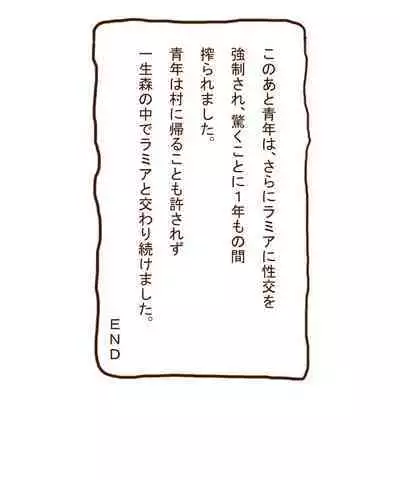 このあと青年は、さらにラミアに性交を
強制され、驚くことに1年もの間
搾られました。
青年は村に帰ることも許されず
一生森の中でラミアと交わり続けました。
END